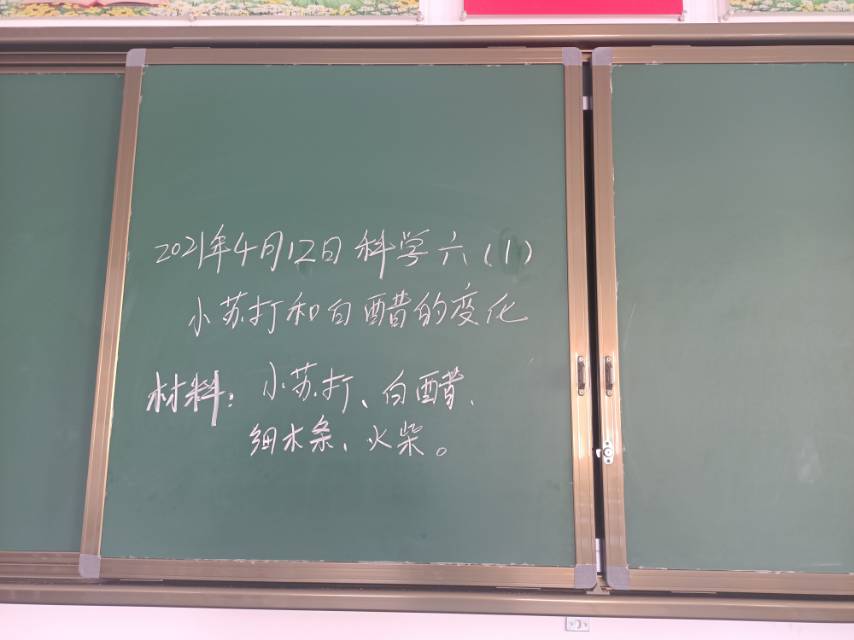 2021年4月12日科学六(1)
小苏打和白醋的变化
材料：小苏打、白醋、
细木条、火柴。